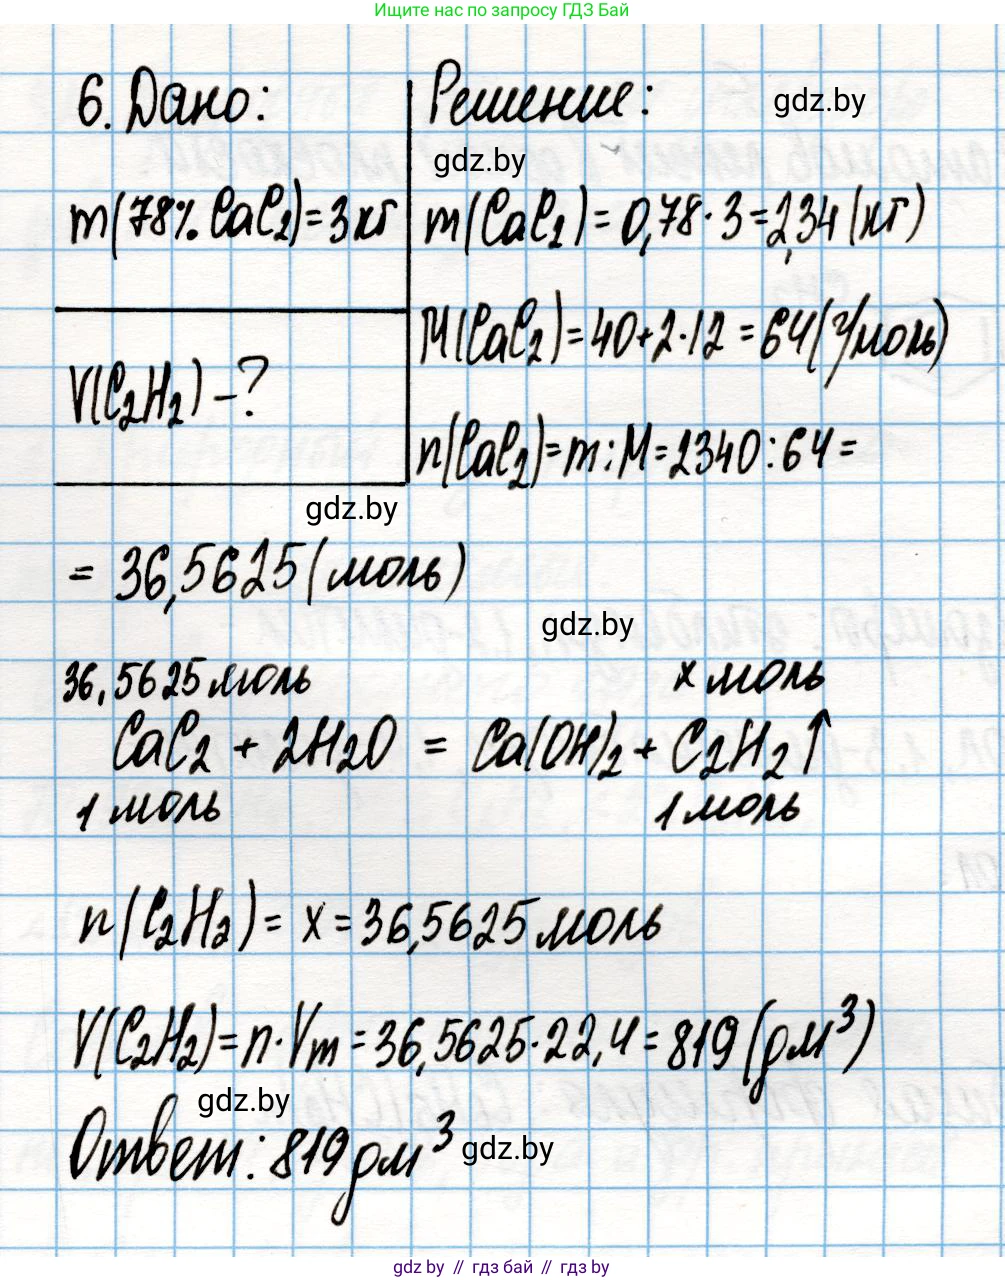 Ищите нас по запросу ГДЗ Бай
6. Дано:
Решение:
gdz.by
gdz.by
m(78% CaC₂)=3кг
m(CaC₂)=0,78·3=2,34(кг)
M(CaC₂)=40+2·12=64(г/моль)
V(C₂H₂)-?
n(CaC₂)=m:M=2340:64=
gdz.by
= 36,5625(моль)
gdz.by
36,5625моль x моль
CaC₂ + 2H₂O = Ca(OH)₂ + C₂H₂↑
1 моль 1 моль
n(C₂H₂)= x =36,5625моль
V(C₂H₂)=n·Vm=36,5625·22,4=819(дм³)
gdz.by
Ответ: 819дм³
gdz.by
gdz.by // гдз бай // gdz.by